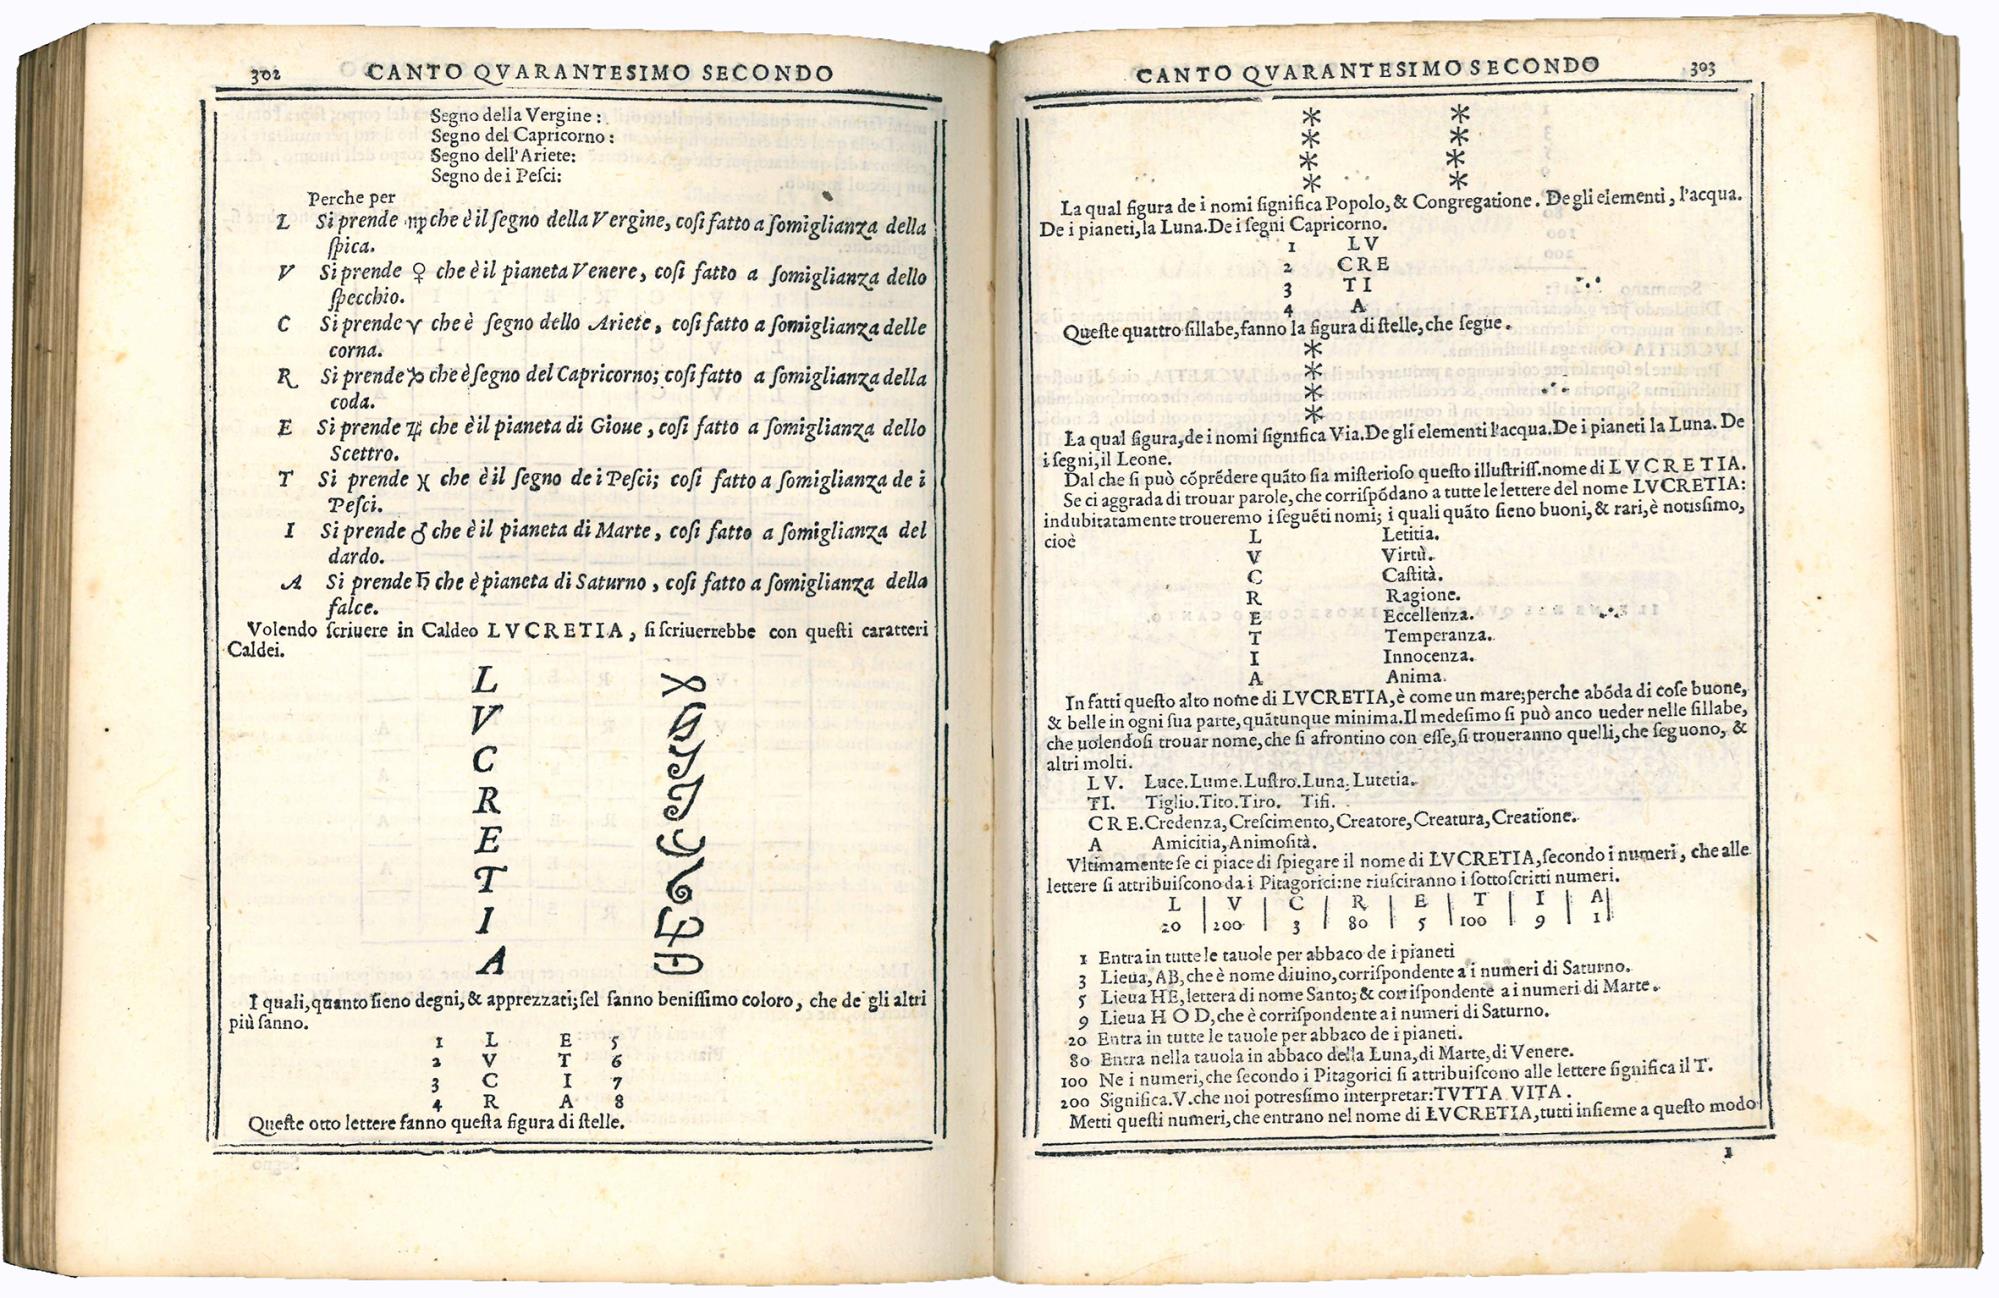 302 CANTO QVARANTESIMO SECONDO
Segno della Vergine :
Segno del Capricorno :
Segno dell'Ariete:
Segno de i Peſci:
Perche per
L Si prende ♍ che è il ſegno della Vergine, coſi fatto a ſomiglianza della
ſpica.
V Si prende ♀ che è il pianeta Venere, coſi fatto a ſomiglianza dello
ſpecchio.
C Si prende ♈ che è ſegno dello Ariete, coſi fatto a ſomiglianza delle
corna.
R Si prende ♑ che è ſegno del Capricorno; coſi fatto a ſomiglianza della
coda.
E Si prende ♃ che è il pianeta di Gioue, coſi fatto a ſomiglianza dello
Scettro.
T Si prende ♓ che è il ſegno de i Peſci; coſi fatto a ſomiglianza de i
Peſci.
I Si prende ♂ che è il pianeta di Marte, coſi fatto a ſomiglianza del
dardo.
A Si prende ♄ che è pianeta di Saturno, coſi fatto a ſomiglianza della
falce.
Volendo ſcriuere in Caldeo LVCRETIA, ſi ſcriuerrebbe con queſti caratteri
Caldei.
L
V
C
R
E
T
I
A
I quali, quanto ſieno degni, & apprezzati; ſel ſanno beniſſimo coloro, che de gli altri
più ſanno.
1 L E 5
2 V T 6
3 C I 7
4 R A 8
Queſte otto lettere fanno queſta figura di ſtelle.
CANTO QVARANTESIMO SECONDO 303
* *
* *
* *
* *
La qual figura de i nomi ſignifica Popolo, & Congregatione. De gli elementi, l'acqua.
De i pianeti, la Luna. De i ſegni Capricorno.
1 LV
2 CRE
3 TI
4 A
Queſte quattro ſillabe, fanno la figura di ſtelle, che ſegue.
*
*
*
*
La qual figura, de i nomi ſignifica Via. De gli elementi l'acqua. De i pianeti la Luna. De
i ſegni, il Leone.
Dal che ſi può cóprẽdere quãto ſia miſterioſo queſto illuſtriſſ. nome di LVCRETIA.
Se ci aggrada di trouar parole, che corriſpódano a tutte le lettere del nome LVCRETIA:
indubitatamente troueremo i ſeguẽti nomi; i quali quãto ſieno buoni, & rari, è notiſſimo,
cioè L Letitia.
V Virtù.
C Caſtità.
R Ragione.
E Eccellenza.
T Temperanza.
I Innocenza.
A Anima.
In fatti queſto alto nome di LVCRETIA, è come un mare; perche abóda di coſe buone,
& belle in ogni ſua parte, quãtunque minima. Il medeſimo ſi può anco ueder nelle ſillabe,
che uolendoſi trouar nome, che ſi afrontino con eſſe, ſi troueranno quelli, che ſeguono, &
altri molti.
LV. Luce. Lume. Luſtro. Luna. Lutetia.
TI. Tiglio. Tito. Tiro. Tifi.
CRE. Credenza, Creſcimento, Creatore, Creatura, Creatione.
A Amicitia, Animoſità.
Vltimamente ſe ci piace di ſpiegare il nome di LVCRETIA, ſecondo i numeri, che alle
lettere ſi attribuiſcono da i Pitagorici: ne riuſciranno i ſottoſcritti numeri.
L | V | C | R | E | T | I | A
20 | 200 | 3 | 80 | 5 | 100 | 9 | 1
1 Entra in tutte le tauole per abbaco de i pianeti
3 Lieua, AB, che è nome diuino, corriſpondente a i numeri di Saturno.
5 Lieua HE, lettera di nome Santo; & corriſpondente a i numeri di Marte.
9 Lieua HOD, che è corriſpondente a i numeri di Saturno.
20 Entra in tutte le tauole per abbaco de i pianeti.
80 Entra nella tauola in abbaco della Luna, di Marte, di Venere.
100 Ne i numeri, che ſecondo i Pitagorici ſi attribuiſcono alle lettere ſignifica il T.
200 Significa. V. che noi potreſſimo interpretar: TVTTA VITA.
Metti queſti numeri, che entrano nel nome di LVCRETIA, tutti inſieme a queſto modo
1